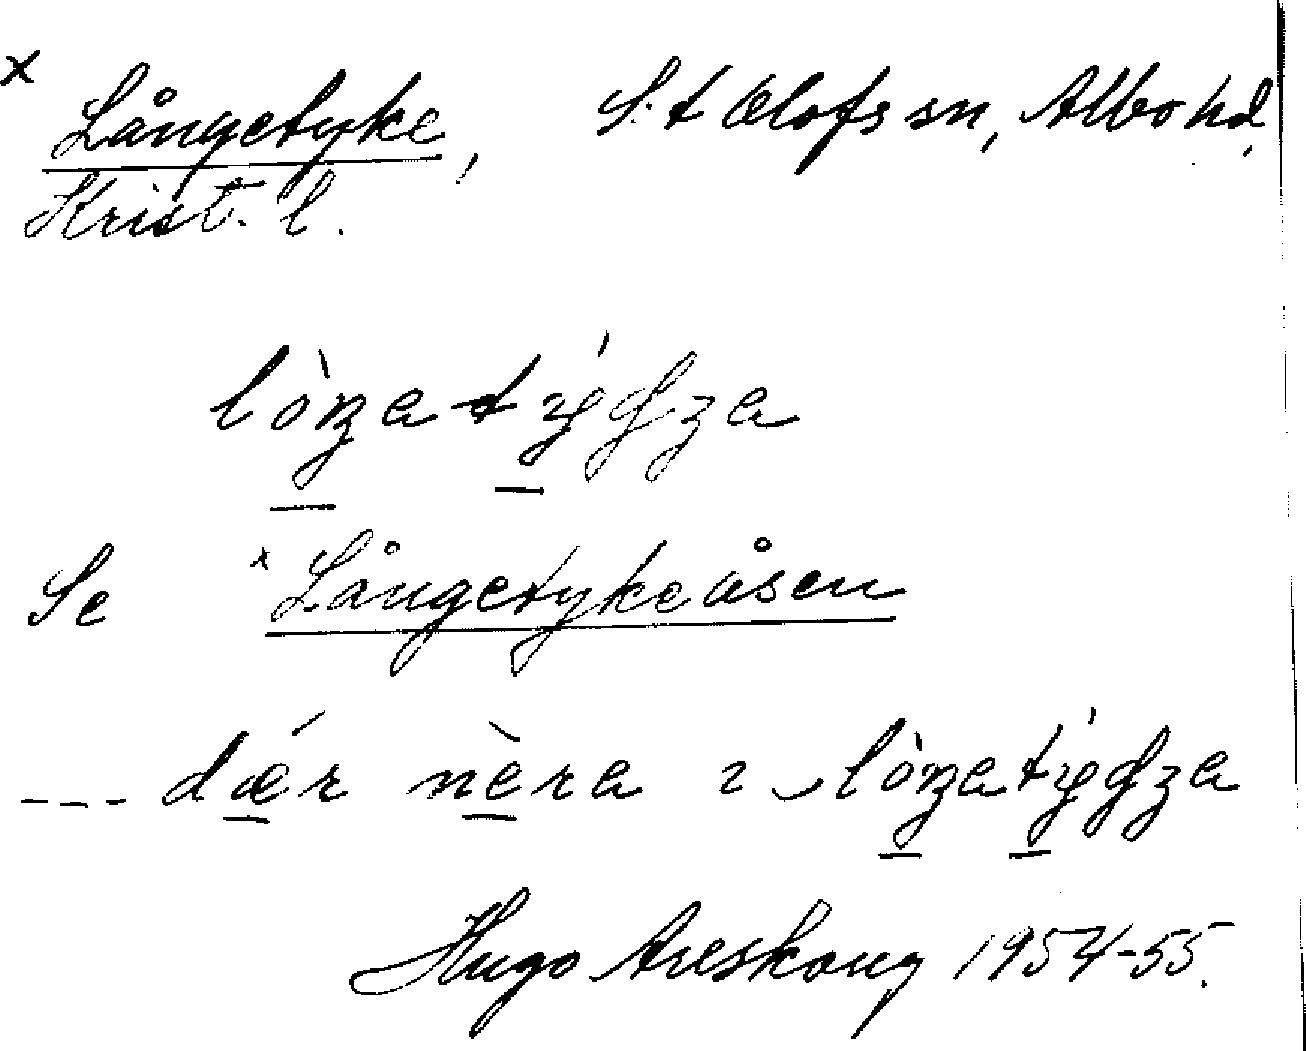 x Långetyke, S:t Olofs sn, Albo hd,
Krist. l.
lòŋatýdʒa
Se x Långetykeåsen
--- dǽr nèra ɩ lòŋatýdʒa
Hugo Areskoug 1954-55.